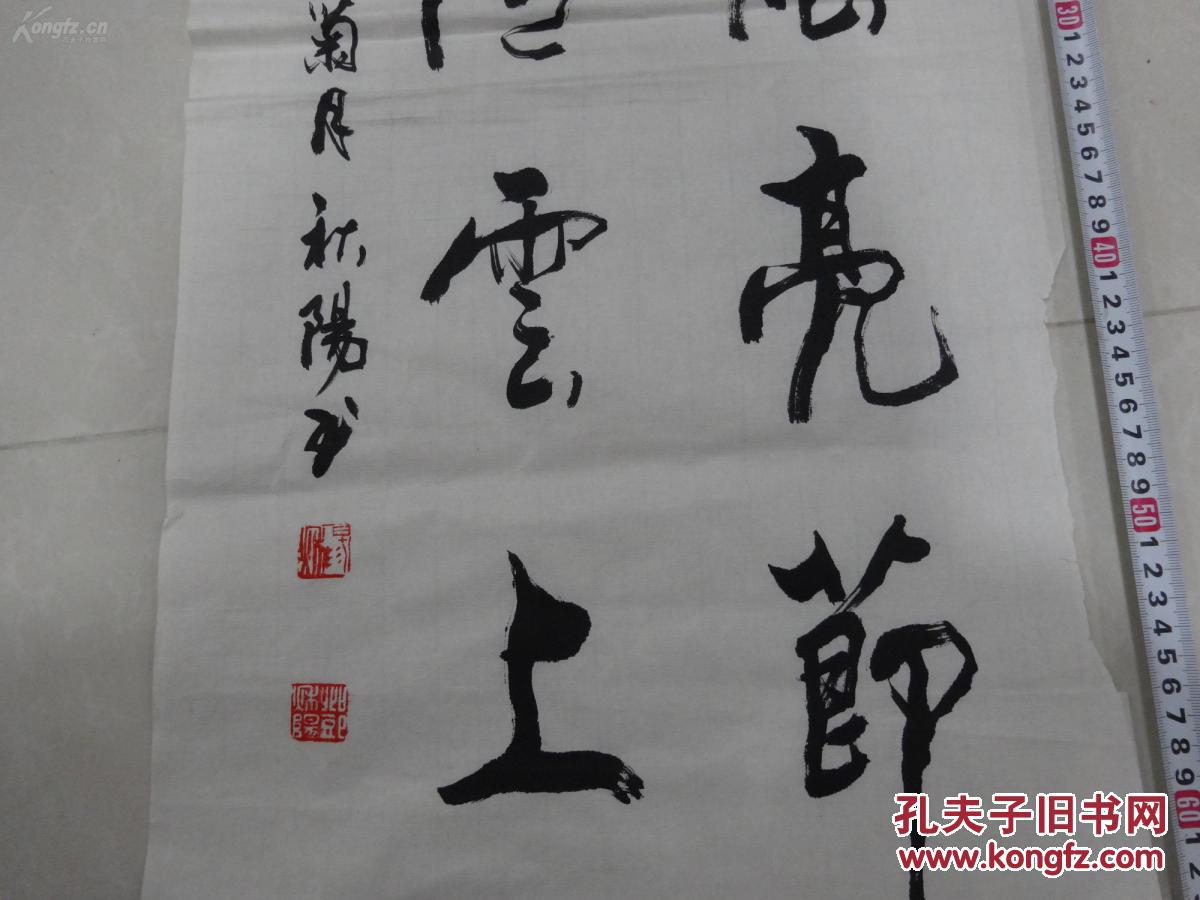 亮節
雲上
菊月秋陽书
Kongfz.cn
孔夫子旧书网
30 1 2 3 4 5 6 7 8 9 40 1 2 3 4 5 6 7 8 9 50 1 2 3 4 5 6 7 8 9 60 1 2
孔夫子旧书网
www.kongfz.com